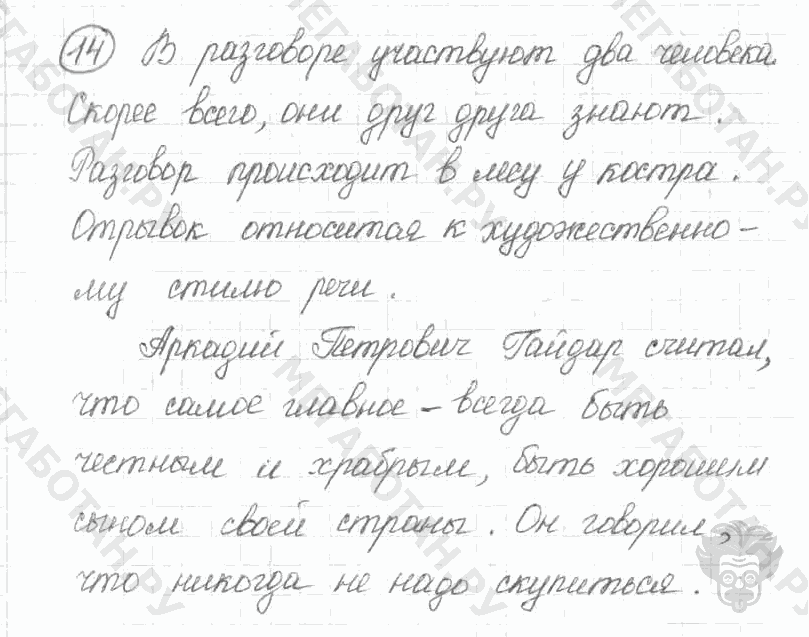 14 В разговоре участвуют два человека.
Скорее всего, они друг друга знают.
Разговор происходит в лесу у костра.
Отрывок относится к художественно-
му стилю речи.
Аркадий Петрович Гайдар считал,
что самое главное – всегда быть
честным и храбрым, быть хорошим
сыном своей страны. Он говорил,
что никогда не надо скупиться.
МЕГАБОТАН.РУ